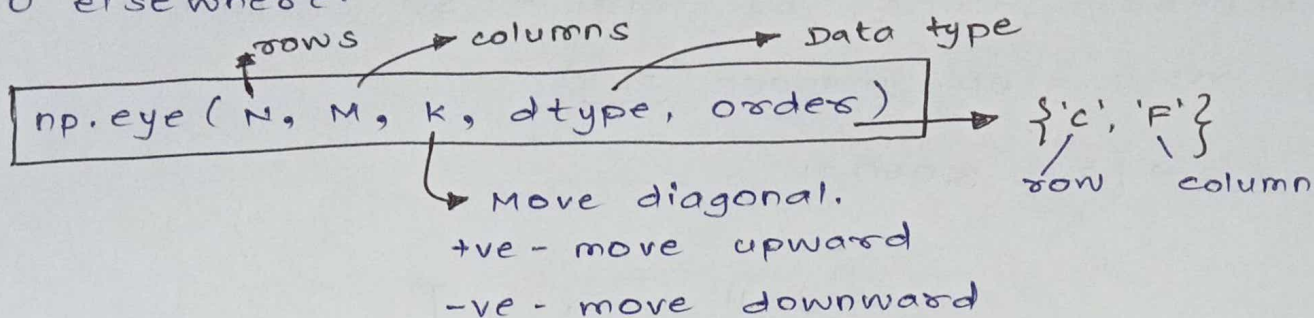 0 elsewhere.
rows columns Data type
np.eye ( N, M, K, dtype, order) {'C', 'F'}
row column
Move diagonal.
+ve - move upward
-ve - move downward